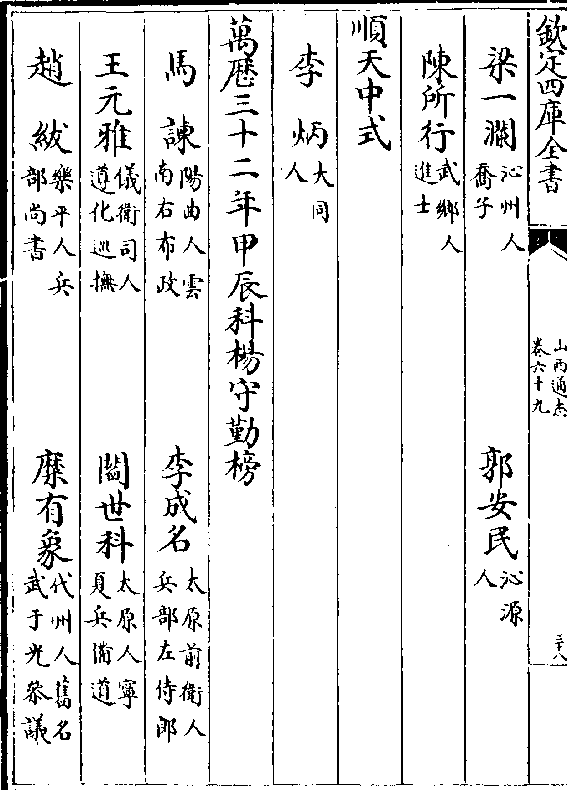 欽定四庫全書
山西通志
卷六十九
三十八
梁一瀾 沁州人喬子
郭安民 沁源人
陳所行 武鄉人進士
順天中式
李炳 大同人
萬歷三十二年甲辰科楊守勤榜
馬諫 陽曲人雲南右布政
李成名 太原前衛人兵部左侍郎
王元雅 儀衛司人遵化巡撫
閻世科 太原人寧夏兵備道
趙紱 樂平人兵部尚書
糜有象 代州人舊名武于光叅議